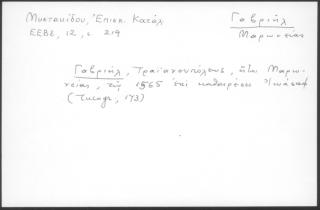 Μυστακίδου, Ἐπισκ. Κατάλ
ΕΕΒΣ, 12, σ. 219
Γαβριήλ
Μαρωνείας
Γαβριήλ, Τραϊανουπόλεως, ἤτοι Μαρω-
νείας, τῷ 1565 ἐπὶ καθαιρέσει Ἰωάσαφ
173)